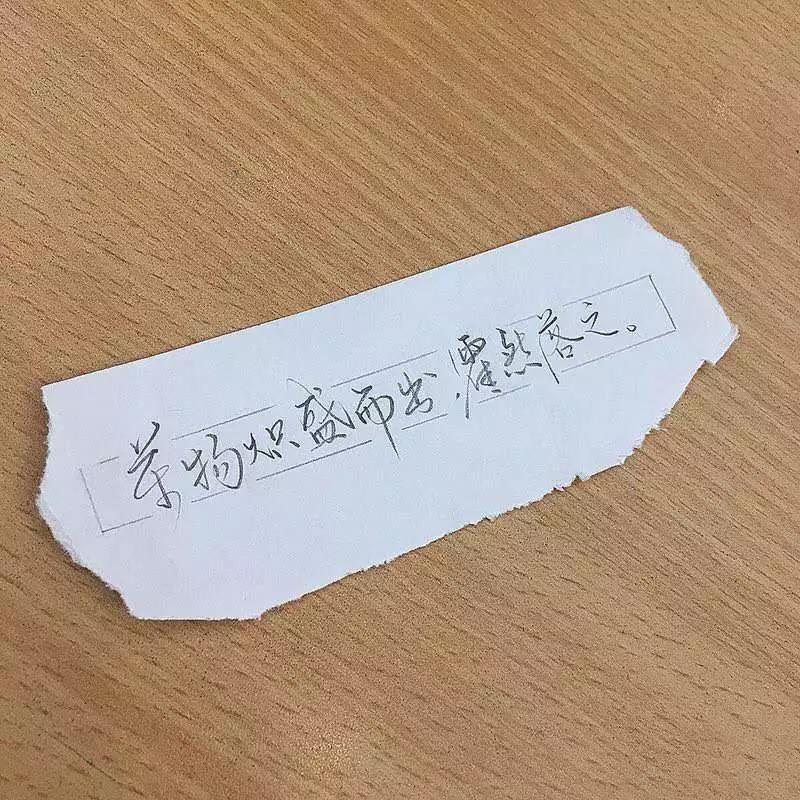 万物炽盛而出,霍然落之。